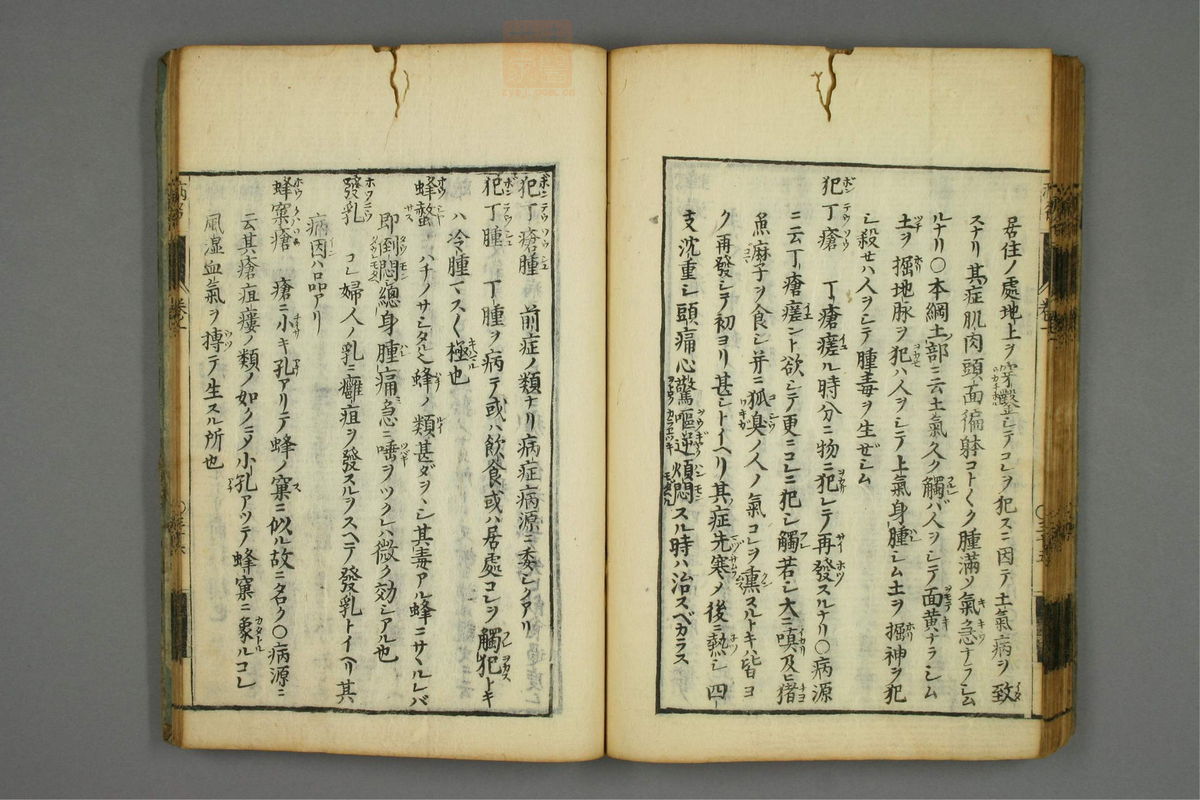 居住ノ處地上ヲ穿鑿シテコレヲ犯スニ因テ土氣病ヲ致
スナリ其症肌肉頭面徧身コトくク腫滿ソ氣急ナラシム
ルナリ〇本綱土部ニ云土氣久ク觸バ人ヲシテ面黄ナラシム
土ヲ掘地脉ヲ犯ハ人ヲシテ上氣身腫シム土ヲ掘神ヲ犯
シ殺セハ人ヲシテ腫毒ヲ生ぜシム
犯丁瘡 丁瘡瘥ル時分ニ物ニ犯レテ再發スルナリ〇病源
ニ云丁瘡瘥ント欲シテ更ニコレニ犯シ觸若シ大ニ嗔及ビ
魚麻子ヲ食シ并ニ狐臭ノ人ノ氣コレヲ熏スルトキハ皆ヨ
ク再發シテ初ヨリ甚シトイヘリ其症先寒メ後ニ熱シ四
支沈重シ頭痛心驚嘔逆煩悶スル時ハ治スベカラス
犯丁瘡腫 前症ノ類ナリ病症病源ニ委シクアリ
犯丁腫 丁腫ヲ病テ或ハ飲食或ハ居處コレヲ觸犯トキ
ハ冷腫マスく極也
蜂螫 ハチノサシタル也蜂ノ類甚ダヲヽシ其毒アル蜂ニサヽルレバ
即倒悶總身腫痛急ニ唾ヲツクレハ微ク効シアル也
發乳 コレ婦人ノ乳ニ癰疽ヲ發スルヲスヘテ發乳トイヘリ其
病因ハ品アリ
蜂窠瘡 瘡ニ小キ孔アリテ蜂ノ窠ニ似ル故ニ名ク〇病源ニ
云其瘡疽瘻ノ類ノ如クニメ小孔アツテ蜂窠ニ象ルコレ
風湿血氣ヲ搏テ生スル所也